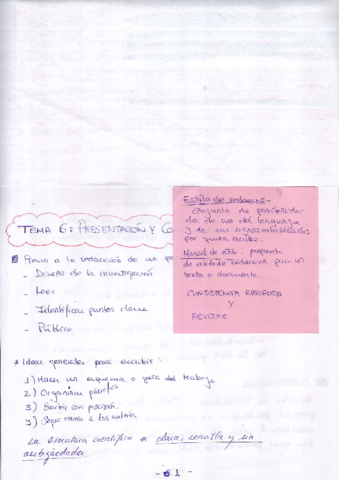 TEMA 6: PRESENTACIÓN Y CO
Previo a la redacción de un
- Diseño de la investigación
- Leer
- Identificar puntos clave
- Público
* Ideas generales para escribir:
1) Hacer un esquema o guía del trabajo
2) Organizar
3) Escribir con precisión.
4) a los autores.
La literatura científica es clara, sencilla y sin
ambigüedades.
- 61 -
Estilo de redacció-
Conjunto de
de uso del lenguaje
y de sus signos establecidos
por quien escribe.
Manual de estilo: propuesta
de estilo de redacción para un
texto o documento.
CONSISTENCIA
Y
REVISAR